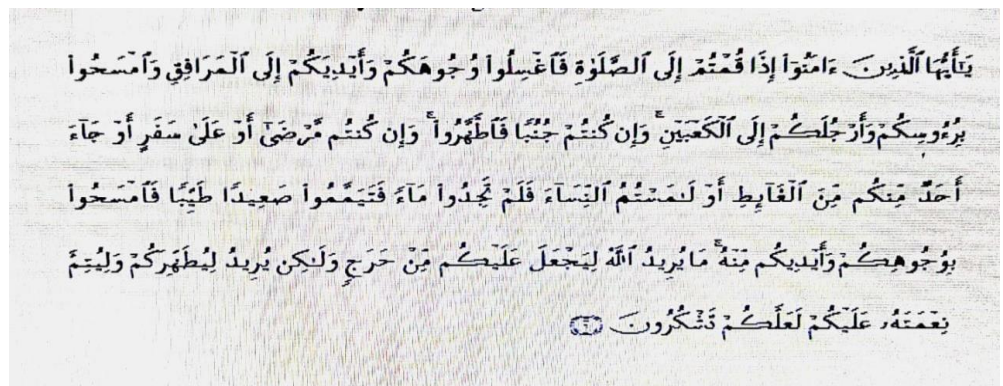 يَٰٓأَيُّهَا ٱلَّذِينَ ءَامَنُوٓا۟ إِذَا قُمْتُمْ إِلَى ٱلصَّلَوٰةِ فَٱغْسِلُوا۟ وُجُوهَكُمْ وَأَيْدِيَكُمْ إِلَى ٱلْمَرَافِقِ وَٱمْسَحُوا۟
بِرُءُوسِكُمْ وَأَرْجُلَكُمْ إِلَى ٱلْكَعْبَيْنِ ۚ وَإِن كُنتُمْ جُنُبًا فَٱطَّهَّرُوا۟ ۚ وَإِن كُنتُم مَّرْضَىٰٓ أَوْ عَلَىٰ سَفَرٍ أَوْ جَآءَ
أَحَدٌ مِّنكُم مِّنَ ٱلْغَآئِطِ أَوْ لَٰمَسْتُمُ ٱلنِّسَآءَ فَلَمْ تَجِدُوا۟ مَآءً فَتَيَمَّمُوا۟ صَعِيدًا طَيِّبًا فَٱمْسَحُوا۟
بِوُجُوهِكُمْ وَأَيْدِيكُم مِّنْهُ ۚ مَا يُرِيدُ ٱللَّهُ لِيَجْعَلَ عَلَيْكُم مِّنْ حَرَجٍ وَلَٰكِن يُرِيدُ لِيُطَهِّرَكُمْ وَلِيُتِمَّ
نِعْمَتَهُۥ عَلَيْكُمْ لَعَلَّكُمْ تَشْكُرُونَ ٦